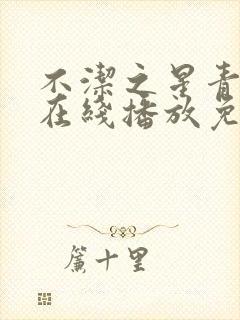 不潔之星青
在綫播放免
簾十里